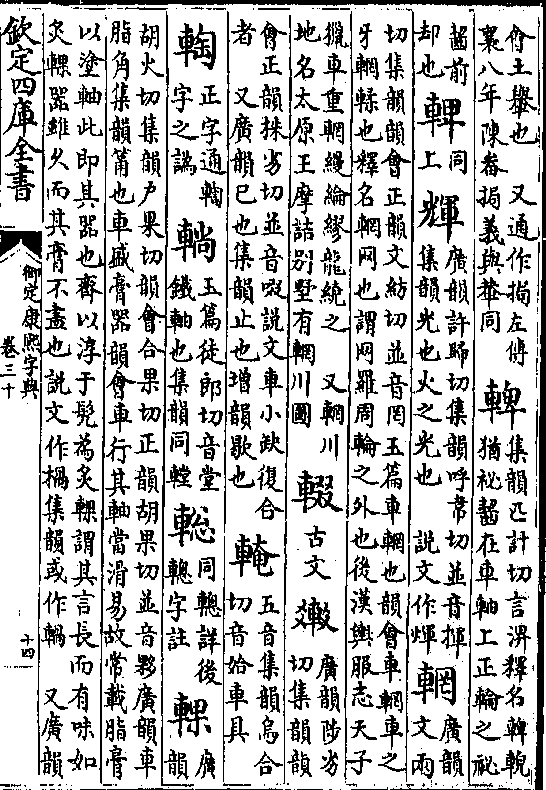 會土轝也 又通作挶左傳
襄八年陳畚挶義與輂同
䡟
集韻匹計切言淠釋名䡟輗
猶祕齧在車軸上正輪之祕
齧前
却也
同
上
輝
廣韻許歸切集韻呼韋切並音揮
集韻光也火之光也 說文作煇
輞
廣韻
文兩
切集韻韻會正韻文紡切並音罔玉篇車輞也韻會車輞車之
牙輞輮也釋名輞网也謂网羅周輪之外也後漢輿服志天子
獵車重輞縵綸繆龍繞之 又輞川
地名太原王摩詰別墅有輞川圖
輟
古文
廣韻陟劣
切集韻韻
會正韻株劣切並音啜說文車小缺復合
者 又廣韻已也集韻止也增韻歇也
五音集韻烏合
切音始車具
正字通
字之譌
玉篇徒郎切音堂
鐵軸也集韻同
同 詳後
字註
輠
廣
韻
胡火切集韻戶果切韻會合果切正韻胡果切並音夥廣韻車
脂角集韻筩也車盛膏器韻會車行其軸當滑易故常載脂膏
以塗軸此即其器也齊以淳于髡為炙輠謂其言長而有味如
炙輠器雖久而其膏不盡也說文作楇集韻或作 又廣韻
欽定四庫全書
御定康熙字典
卷三十
十四